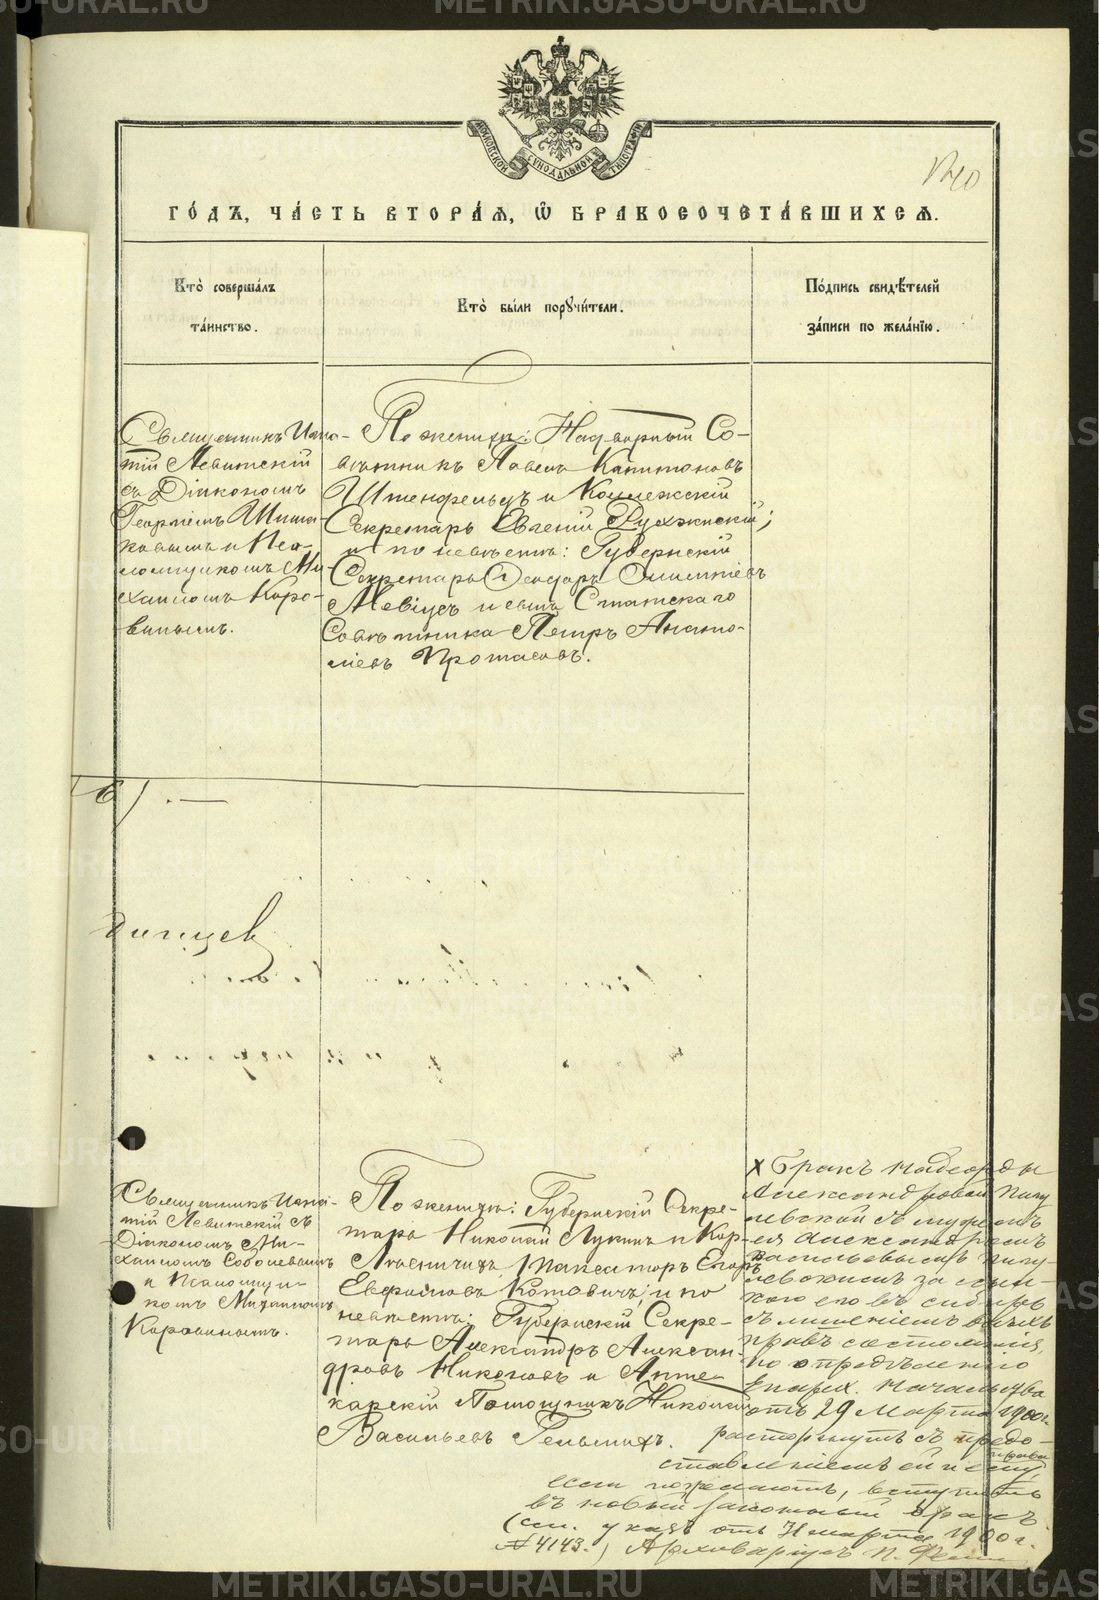 МОСКОВСКОЙ СѴНОДАЛЬНОЙ ТИПОГРАФІИ
ГО́ДЪ, ЧА́СТЬ ВТОРА́Я, Ѡ҆ БРАКОСОЧЕТА́ВШИХСЯ.
Кто̀ соверша́лъ
та́инство.
Кто̀ бы́ли порꙋчи́тели.
По́дпись свидѣ́телей
за́писи по жела́нїю.
Священникъ Игна-
тій Левитскій
съ Діакономъ
Георгіемъ Шиша-
ковымъ и Пса-
ломщикомъ Ми-
хаиломъ Коро-
винымъ.
По женихѣ: Надворный Со-
вѣтникъ Павелъ Капитоновъ
Штенфельдъ и Коллежскій
Секретарь Евгеній
и по невѣстѣ: Губернскій
Секретарь Ѳеодоръ
Мевіусъ и сынъ Статскаго
Совѣтника Петръ Анато-
ліевъ Протасовъ.
Священникъ Игна-
тій Левитскій съ
Діакономъ Ми-
хаиломъ Соболевымъ
и Псаломщи-
комъ Михаиломъ
Коровинымъ.
По женихѣ: Губернскій Секре-
тарь Николай Лукинъ и Кор-
Лѣсничихъ Таксаторъ Егоръ
Котовичъ; и по
невѣстѣ: Губернскій Секре-
тарь Александръ Алексан-
дровъ Никоновъ и Апте-
карскій Помощникъ Николай
Васильевъ Гельмихъ.
х Бракъ Надежды
Александровой Пигу-
левской съ мужемъ
ея Александромъ
Васильевымъ Пигу-
левскимъ за ссыл-
кою его въ Сибирь
съ лишеніемъ всѣхъ
правъ состоянія,
по опредѣленію
Епарх. Начальства
отъ 29 Марта 1900 г.
расторгнутъ съ предо-
ставленіемъ ей права
если пожелаетъ, вступить
въ новый законный бракъ
(см. указъ отъ 31 марта 1900 г.
№ 4143.) Архиваріусъ П.
METRIKI.GASO-URAL.RU